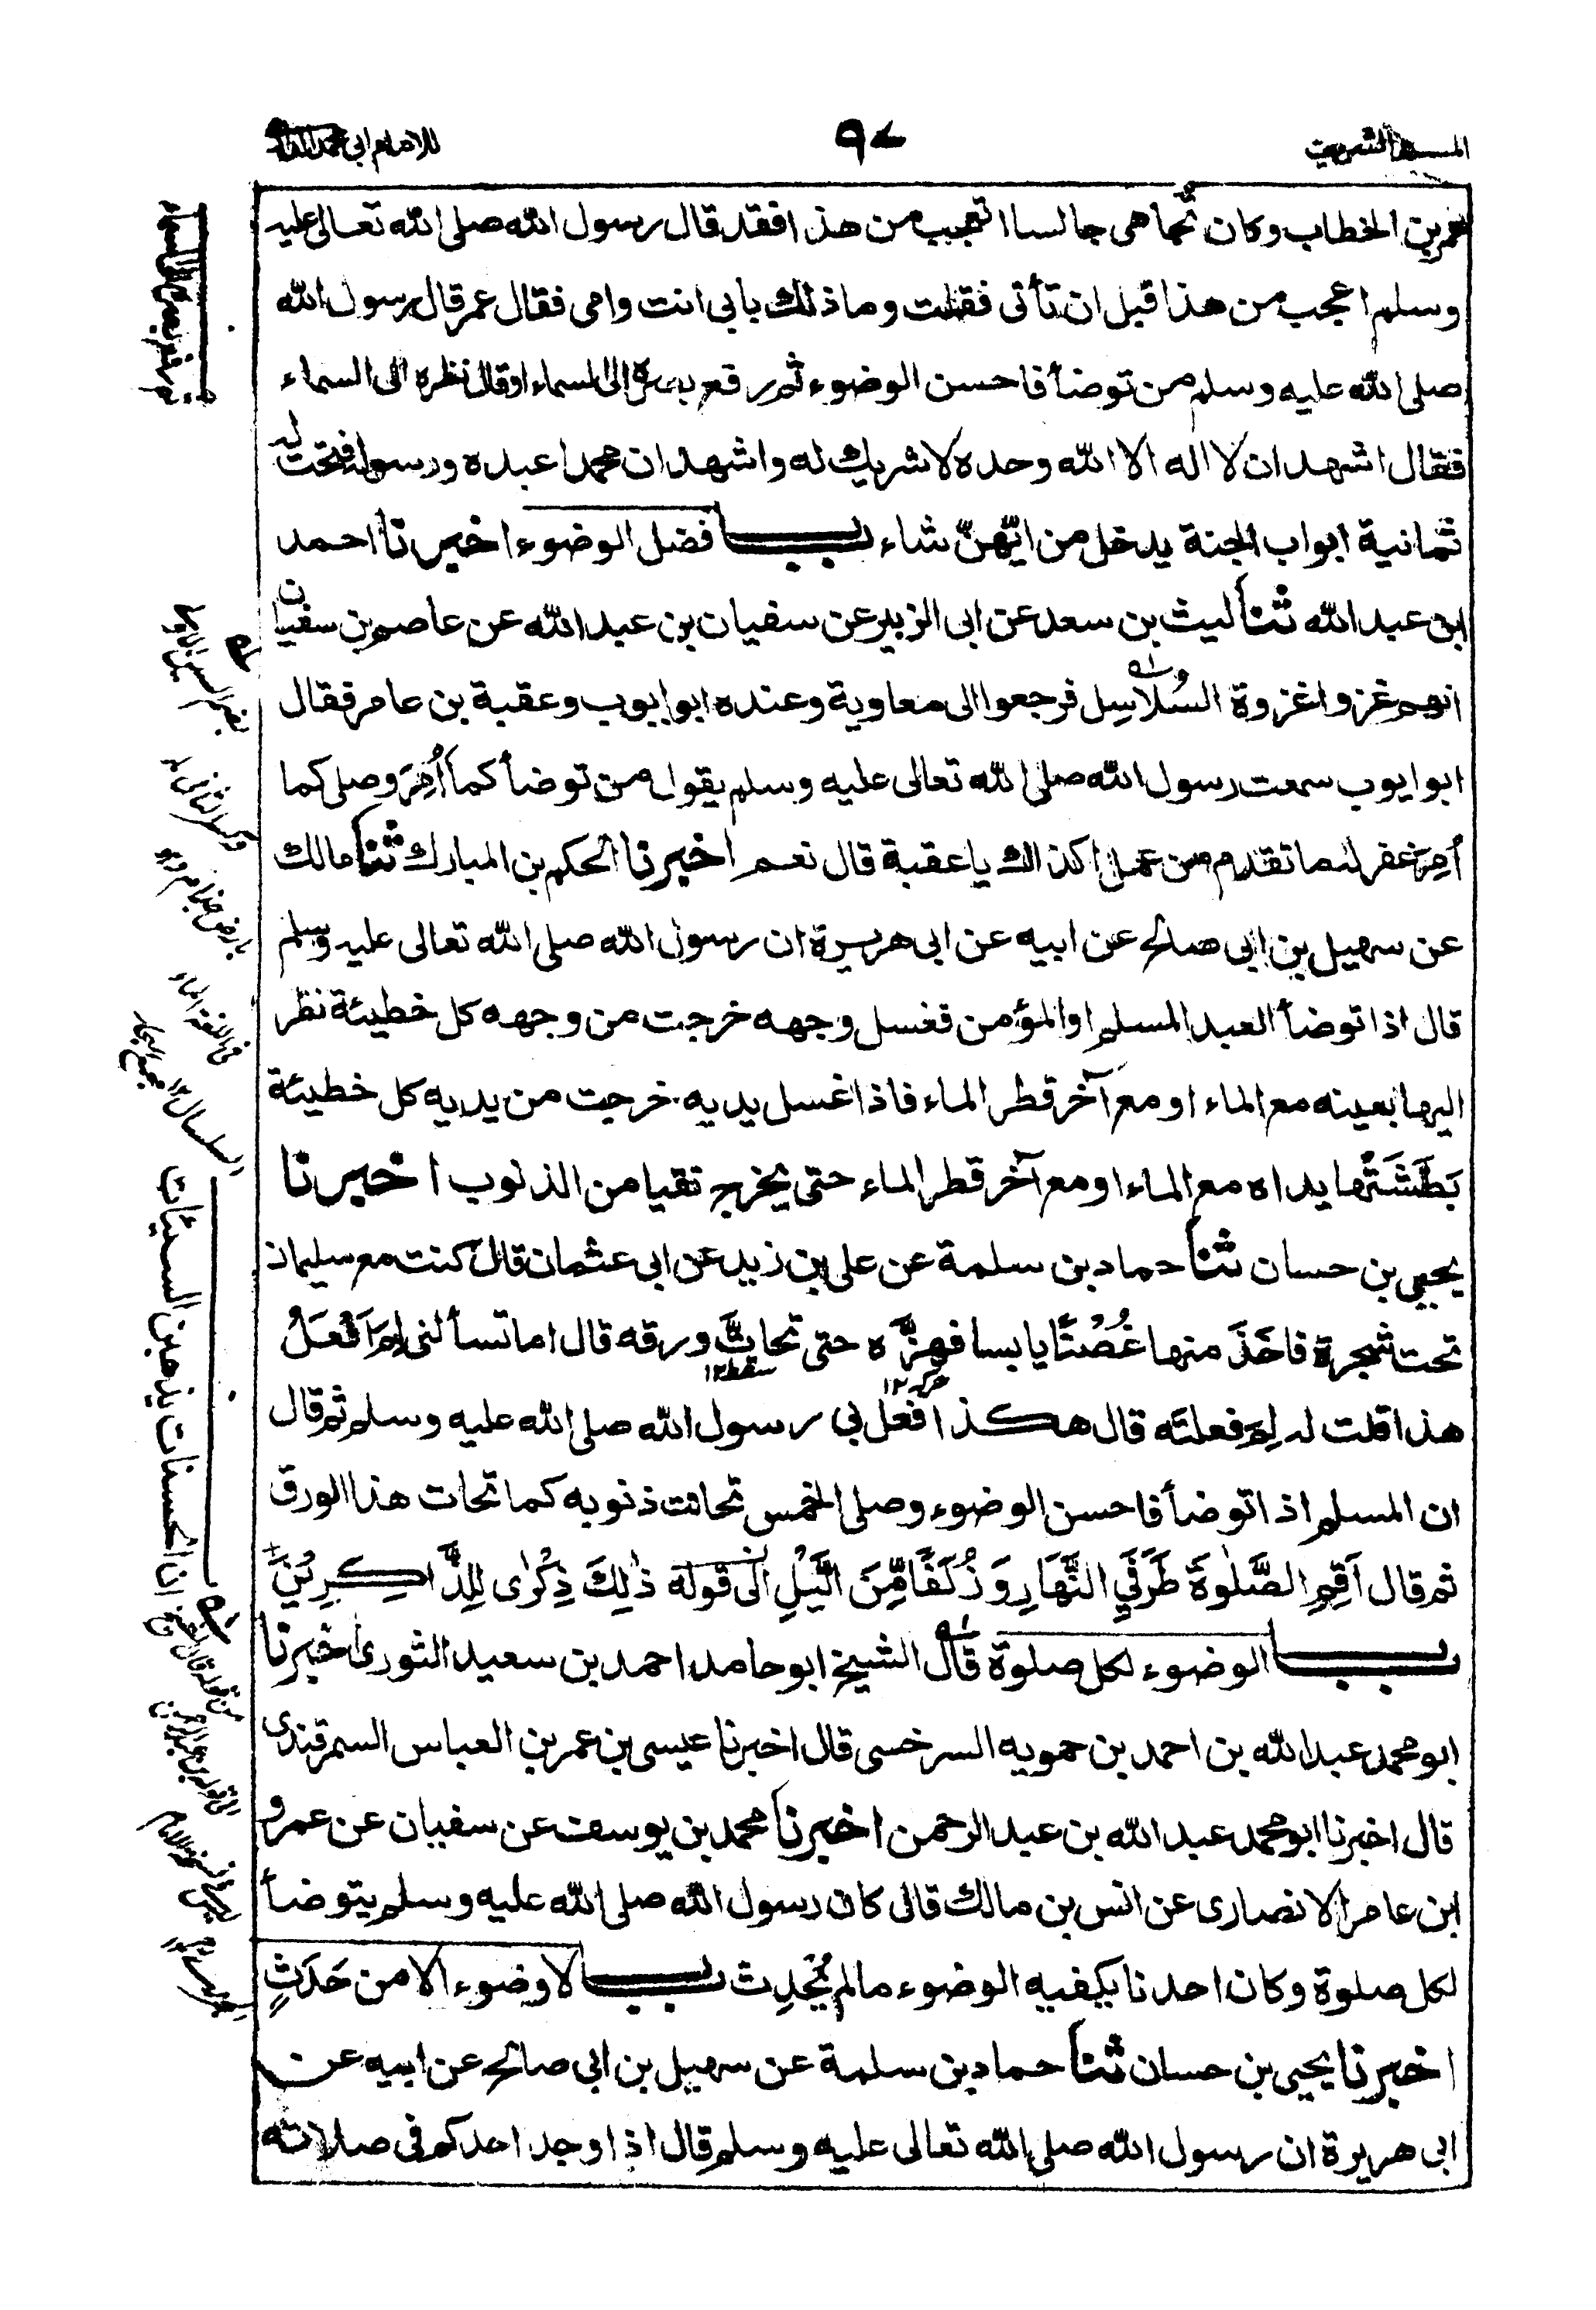 المسند الشريف
٩٧
للامام ابى محمد الدارمى
عمر بن الخطاب وكان تُجاهى جالسا اتعجب من هذا فقد قال رسول الله صلى الله تعالى عليه
وسلم اعجب من هذا قبل ان تأتى فقلت وما ذلك بابى انت وامى فقال عمر قال رسول الله
صلى الله عليه وسلم من توضأ فاحسن الوضوء ثم رفع بصره الى السماء او قال نظره الى السماء
فقال اشهد ان لا اله الا الله وحده لا شريك له واشهد ان محمدا عبده ورسوله فتحت له
ثمانية ابواب الجنة يدخل من ايّهنّ شاء باب فضل الوضوء اخبرنا احمد
ابن عبد الله ثنا ليث بن سعد عن ابى الزبير عن سفيان بن عبد الله عن عاصم بن سفيان
انهم غزوا غزوة السُلاسِل فرجعوا الى معاوية وعنده ابو ايوب وعقبة بن عامر فقال
ابو ايوب سمعت رسول الله صلى الله تعالى عليه وسلم يقول من توضأ كما أُمِرَ وصلى كما
أُمِرَ غفر له ما تقدم من عمل اكذاك يا عقبة قال نعم اخبرنا الحكم بن المبارك ثنا مالك
عن سهيل بن ابى صالح عن ابيه عن ابى هريرة ان رسول الله صلى الله تعالى عليه وسلم
قال اذا توضأ العبد المسلم او المؤمن فغسل وجهه خرجت من وجهه كل خطيئة نظر
اليها بعينه مع الماء او مع آخر قطر الماء فاذا غسل يديه خرجت من يديه كل خطيئة
بَطَشَتْها يداه مع الماء او مع آخر قطر الماء حتى يخرج نقيا من الذنوب اخبرنا
يحيى بن حسان ثنا حماد بن سلمة عن على بن زيد عن ابى عثمان قال كنت مع سليمان
تحت شجرة فاخَذَ منها غُصْنًا يابسا فهزَّه حتى تحاتَّ ورقه قال اما تسألنى لِمَ اَفْعَلُ
سقط ١٢ حركه ١٢
هذا قلت له لِمَ فعلتَه قال هكذا فعل بى رسول الله صلى الله عليه وسلم ثم قال
ان المسلم اذا توضأ فاحسن الوضوء وصلى الخمس تحاتت ذنوبه كما تحات هذا الورق
ثم قال اَقِمِ الصَّلٰوةَ طَرَفَيِ النَّهَارِ وَزُلَفًا مِّنَ الَّيْلِ الى قوله ذٰلِكَ ذِكْرٰى لِلذَّاكِرِيْنَ
باب الوضوء لكل صلوة قال الشيخ ابو حامد احمد بن سعيد الثورى اخبرنا
ابو محمد عبد الله بن احمد بن حمويه السرخسى قال اخبرنا عيسى بن عمر بن العباس السمرقندى
قال اخبرنا ابو محمد عبد الله بن عبد الرحمن اخبرنا محمد بن يوسف عن سفيان عن عمرو
ابن عامر الانصارى عن انس بن مالك قال كان رسول الله صلى الله عليه وسلم يتوضأ
لكل صلوة وكان احدنا يكفيه الوضوء مالم يُحْدِث باب لا وضوء الا من حَدَثٍ
اخبرنا يحيى بن حسان ثنا حماد بن سلمة عن سهيل بن ابى صالح عن ابيه عن
ابى هريرة ان رسول الله صلى الله تعالى عليه وسلم قال اذا وجد احدكم فى صلاته
ثم رفع بصره الى السماء
بضم السين الاولى
وكسر الثانية
ماء بارض جذام
فى اللغة الماء
السلسال ١٢ مجمع البحار
ان الحسنات يذهبن السيئات